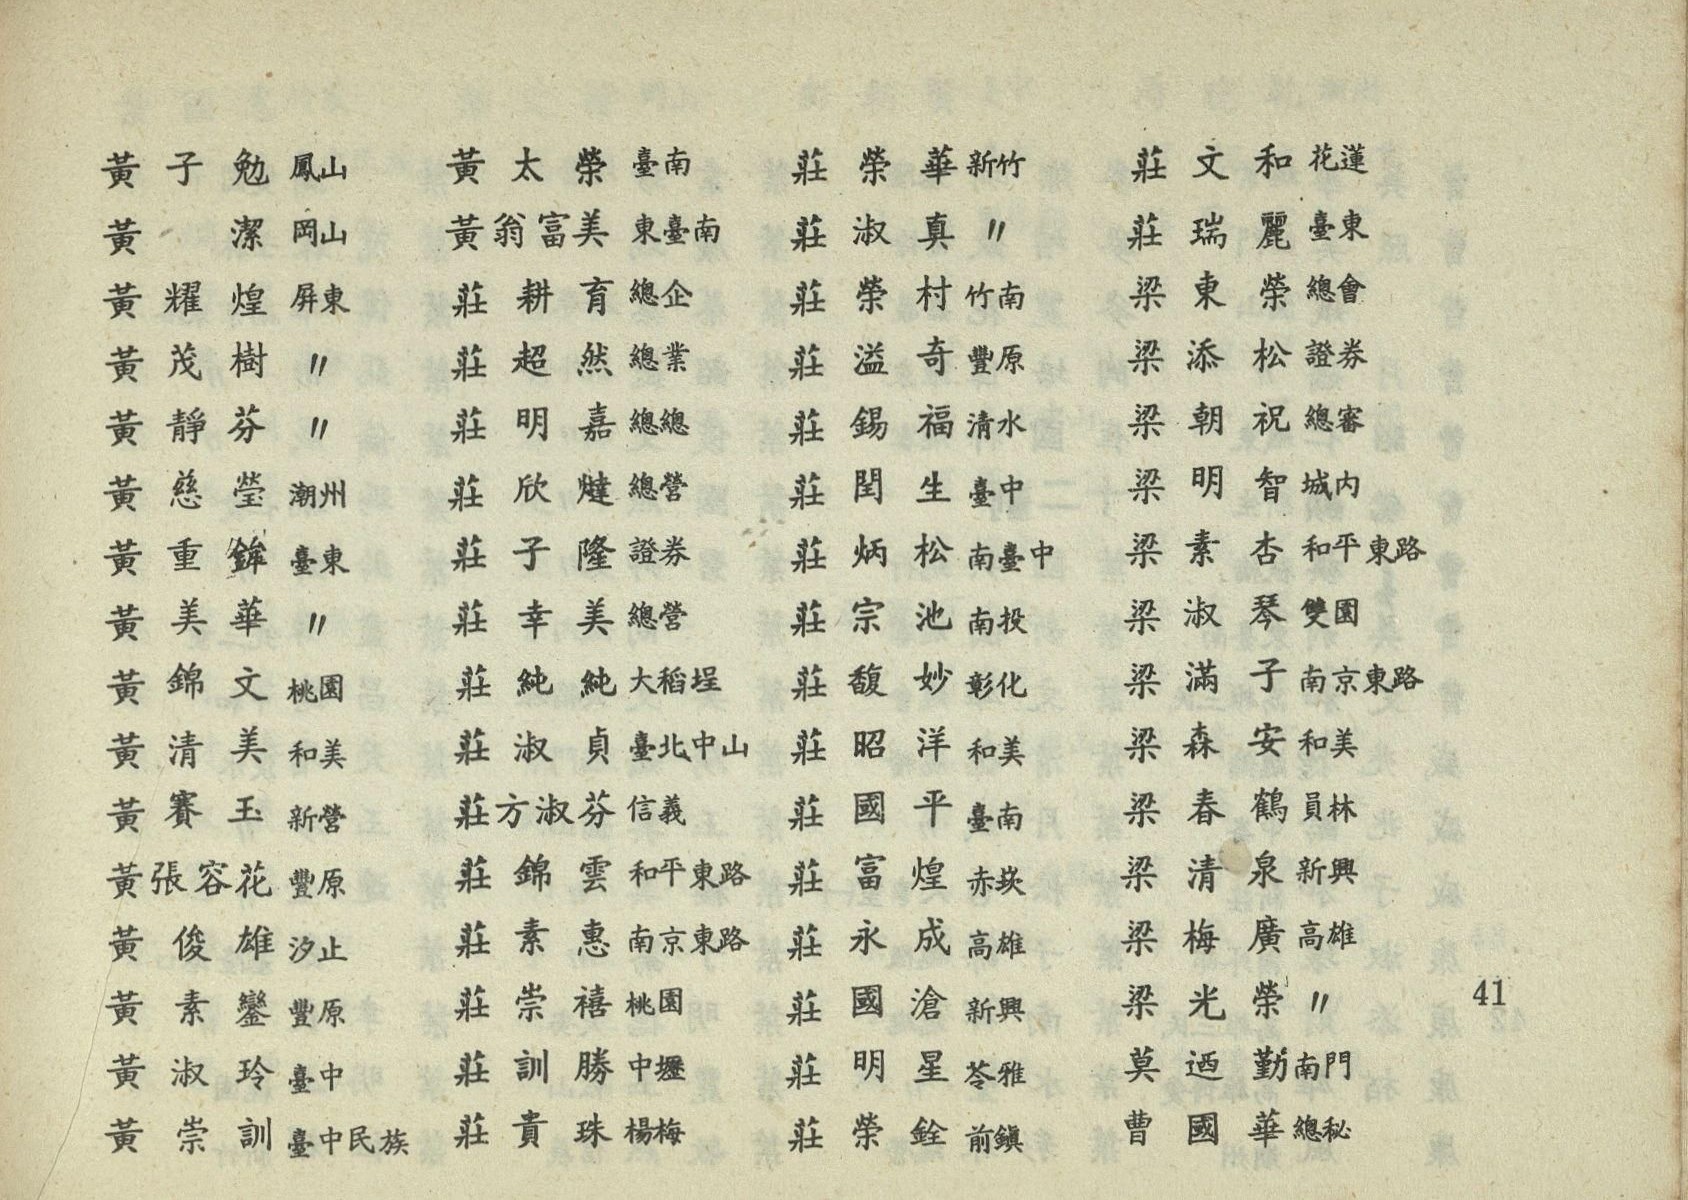 黃子勉 鳳山
黃潔 岡山
黃耀煌 屏東
黃茂樹 〃
黃靜芬 〃
黃慈瑩 潮州
黃重鉾 臺東
黃美華 〃
黃錦文 桃園
黃清美 和美
黃賽玉 新營
黃張容花 豐原
黃俊雄 汐止
黃素鑾 豐原
黃淑玲 臺中
黃崇訓 臺中民族
黃太榮 臺南
黃翁富美 東臺南
莊耕育 總企
莊超然 總業
莊明嘉 總總
莊欣㷮 總營
莊子隆 證券
莊幸美 總營
莊純純 大稻埕
莊淑貞 臺北中山
莊方淑芬 信義
莊錦雲 和平東路
莊素惠 南京東路
莊崇禧 桃園
莊訓勝 中壢
莊貴珠 楊梅
莊榮華 新竹
莊淑真 〃
莊榮村 竹南
莊溢奇 豐原
莊錫福 清水
莊閏生 臺中
莊炳松 南臺中
莊宗池 南投
莊馥妙 彰化
莊昭洋 和美
莊國平 臺南
莊富煌 赤崁
莊永成 高雄
莊國滄 新興
莊明星 苓雅
莊榮銓 前鎮
莊文和 花蓮
莊瑞麗 臺東
梁東榮 總會
梁添松 證券
梁朝祝 總審
梁明智 城內
梁素杏 和平東路
梁淑琴 雙園
梁滿子 南京東路
梁森安 和美
梁春鶴 員林
梁清泉 新興
梁梅廣 高雄
梁光榮 〃
莫迺勤 南門
曹國華 總秘
41